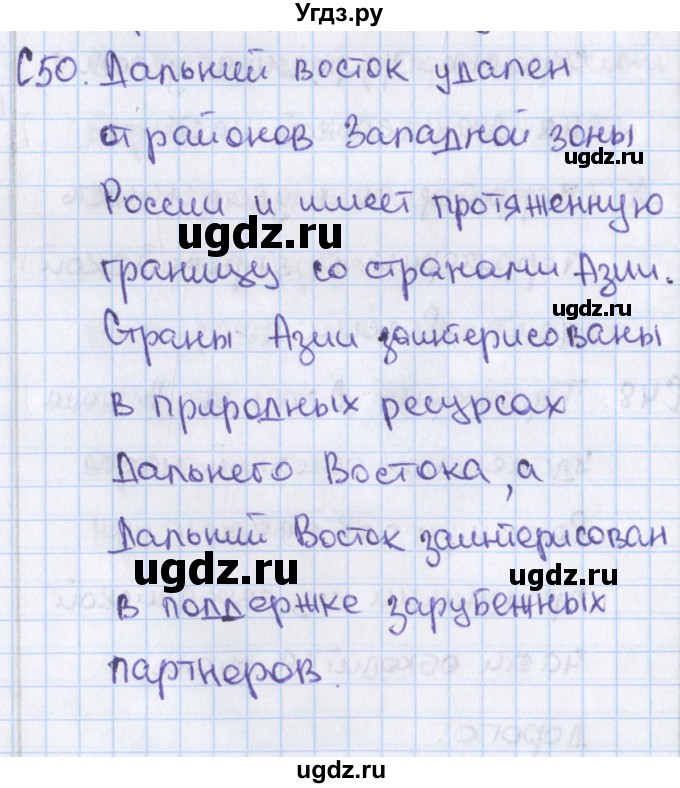 Угдз.ру
С50. Дальний восток удален
от районов Западной зоны
ugdz.ru
России и имеет протяженную
ugdz.ru
границу со странами Азии.
ugdz.ru
Страны Азии заинтерисованы
в природных ресурсах
Дальнего Востока, а
Дальний Восток заинтерисован
ugdz.ru
ugdz.ru
в поддержке зарубежных
партнеров.
ugdz.ru